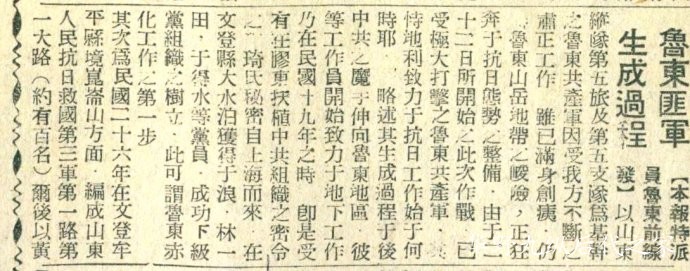 魯東匪軍
生成過程
【本報特派
員魯東前線
發】以山東
縱隊第五旅及第五支隊爲基幹
之魯東共產軍因受我方不斷
肅正工作 雖已滿身創痍 仍
魯東山岳地帶之峻險，正狂
奔于抗日態勢之整備，由于二
十二日所開始之此次作戰 已
受極大打擊之魯東共產軍，其
恃地利致力于抗日工作始于何
時耶 略述其生成過程于後
中共之魔手伸向魯東地區 彼
等工作員開始致力于地下工作
乃在民國十九年之時 卽是受
有在膠東扶植中共組織之密令
之 琦氏秘密自上海而來 在
文登縣大水泊獲得于浪，林一
田，于得水等黨員，成功下級
黨組織之樹立，此可謂魯東赤
化工作之第一步
其次爲民國二十六年在文登牟
平縣境崑嵛山方面，編成山東
人民抗日救國第三軍第一路第
一大路（約有百名）爾後以黃